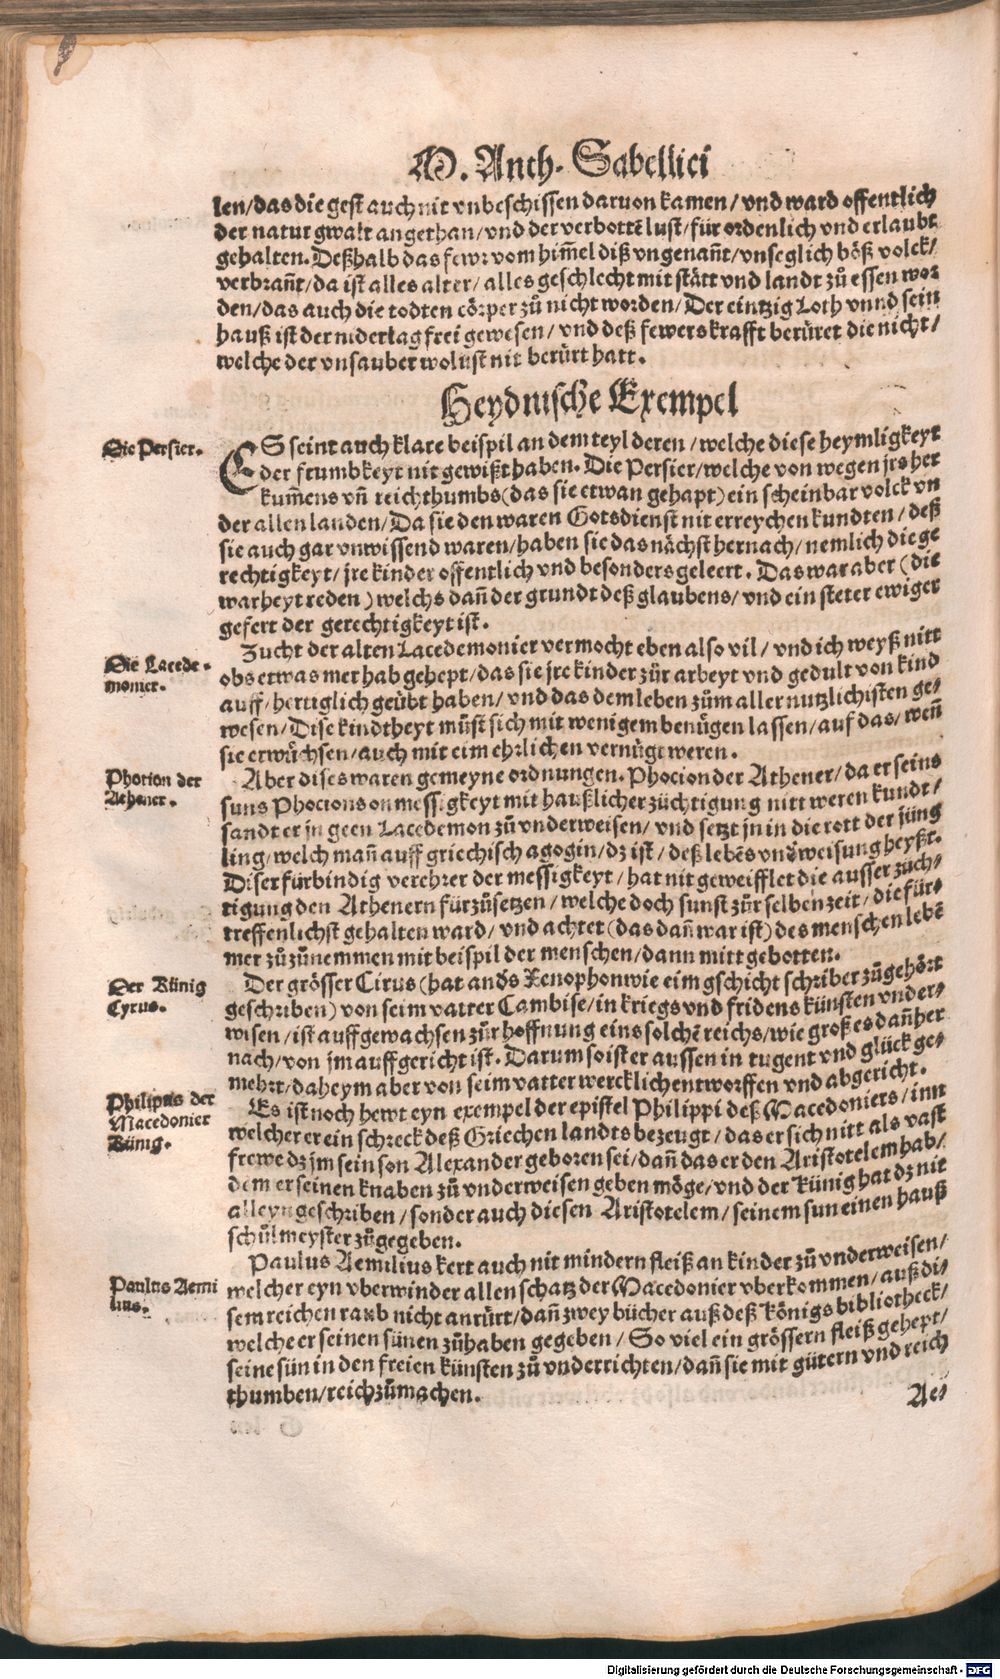 M. Anth. Sabellici
len/das die gest auch nit vnbeschissen daruon kamen/vnd ward offentlich
der natur gwalt angethan/vnd der verbottē lust/für ordenlich vnd erlaubt
gehalten. Deßhalb das fewr vom him̄el diß vngenan̄t/vnseglich böß volck/
verbran̄t/da ist alles alter/alles geschlecht mit stätt vnd landt zů essen wor
den/das auch die todten cörper zů nicht worden/Der eintzig Loth vnnd sein
hauß ist der niderlag frei gewesen/vnd deß fewers krafft berüret die nicht/
welche der vnsauber wolust nit berürt hatt.
Heydnische Exempel
Die Persier.
ES seint auch klare beispil an dem teyl deren/welche diese heymligkeyt
der frumbkeyt nit gewißt haben. Die Persier/welche von wegen jrs her
kum̄ens vn̄ reichthumbs (das sie etwan gehapt) ein scheinbar volck vn
der allen landen/Da sie den waren Gotsdienst nit erreychen kundten/deß
sie auch gar vnwissend waren/haben sie das nächst hernach/nemlich die ge
rechtigkeyt/jre kinder offentlich vnd besonders geleert. Das war aber (die
warheyt reden) welchs dan̄ der grundt deß glaubens/vnd ein steter ewiger
gefert der gerechtigkeyt ist.
Die Lacede-
monier.
Zucht der alten Lacedemonier vermocht eben also vil/vnd ich weyß nitt
obs etwas mer hab gehept/das sie jre kinder zür arbeyt vnd gedult von kind
auff/hertiglich geübt haben/vnd das dem leben zům aller nutzlichisten ge-
wesen/Dise kindtheyt můst sich mit wenigem benůgen lassen/auf das/wen̄
sie erwůchsen/auch mit eim ehrlichen vernůgt weren.
Photion der
Athener.
Aber dises waren gemeyne ordnungen. Phocion der Athener/da er seins
suns Phocions onmessigkeyt mit haußlicher züchtigung nitt weren kundt/
sandt er jn geen Lacedemon zů vnderweisen/vnd setzt jn in die rott der jüng
ling/welch man̄ auff griechisch agogin/dz ist/deß lebēs vnd̄weisung heyßt.
Diser fürbindig verehrer der messigkeyt/hat nit geweifflet die ausser züch-
tigung den Athenern fürzůsetzen/welche doch sunst zůr selben zeit/die für-
treffenlichst gehalten ward/vnd achtet (das dan̄ war ist) des menschen lebē
mer zůzůnemmen mit beispil der menschen/dann mitt gebotten.
Der Künig
Cyrus.
Der grösser Cirus (hat and̄s Xenophon wie eim gschicht schriber zůgehört
geschriben) von seim vatter Cambise/in kriegs vnd fridens künsten vnder-
wisen/ist auffgewachsen zůr hoffnung eins solchē reichs/wie groß es dan̄ her
nach/von jm auffgericht ist. Darum so ist er aussen in tugent vnd glück ge-
mehrt/daheym aber von seim vatter wercklich entworffen vnd abgericht.
Philippus der
Macedonier
Künig.
Es ist noch hewt eyn exempel der epistel Philippi deß Macedoniers/inn
welcher er ein schreck deß Griechen landts bezeugt/das er sich nitt als vast
frewe dz jm sein son Alexander geboren sei/dan̄ das er den Aristotelem hab/
dem er seinen knaben zů vnderweisen geben möge/vnd der Künig hat dz nit
alleyn geschriben/sonder auch diesen Aristotelem/seinem sun einen hauß
schůlmeyster zůgegeben.
Paulus Aemi
lius.
Paulus Aemilius kert auch nit mindern fleiß an kinder zů vnderweisen/
welcher eyn vberwinder allen schatz der Macedonier vberkommen/auß di-
sem reichen raub nicht anrürt/dan̄ zwey bücher auß deß Königs bibliotheck/
welche er seinen sünen zůhaben gegeben/So viel ein grössern fleiß gehept/
seine sün in den freien künsten zů vnderrichten/dan̄ sie mit gütern vnd reich
thumben/reich zůmachen.
Ae-
Digitalisierung gefördert durch die Deutsche Forschungsgemeinschaft - DFG